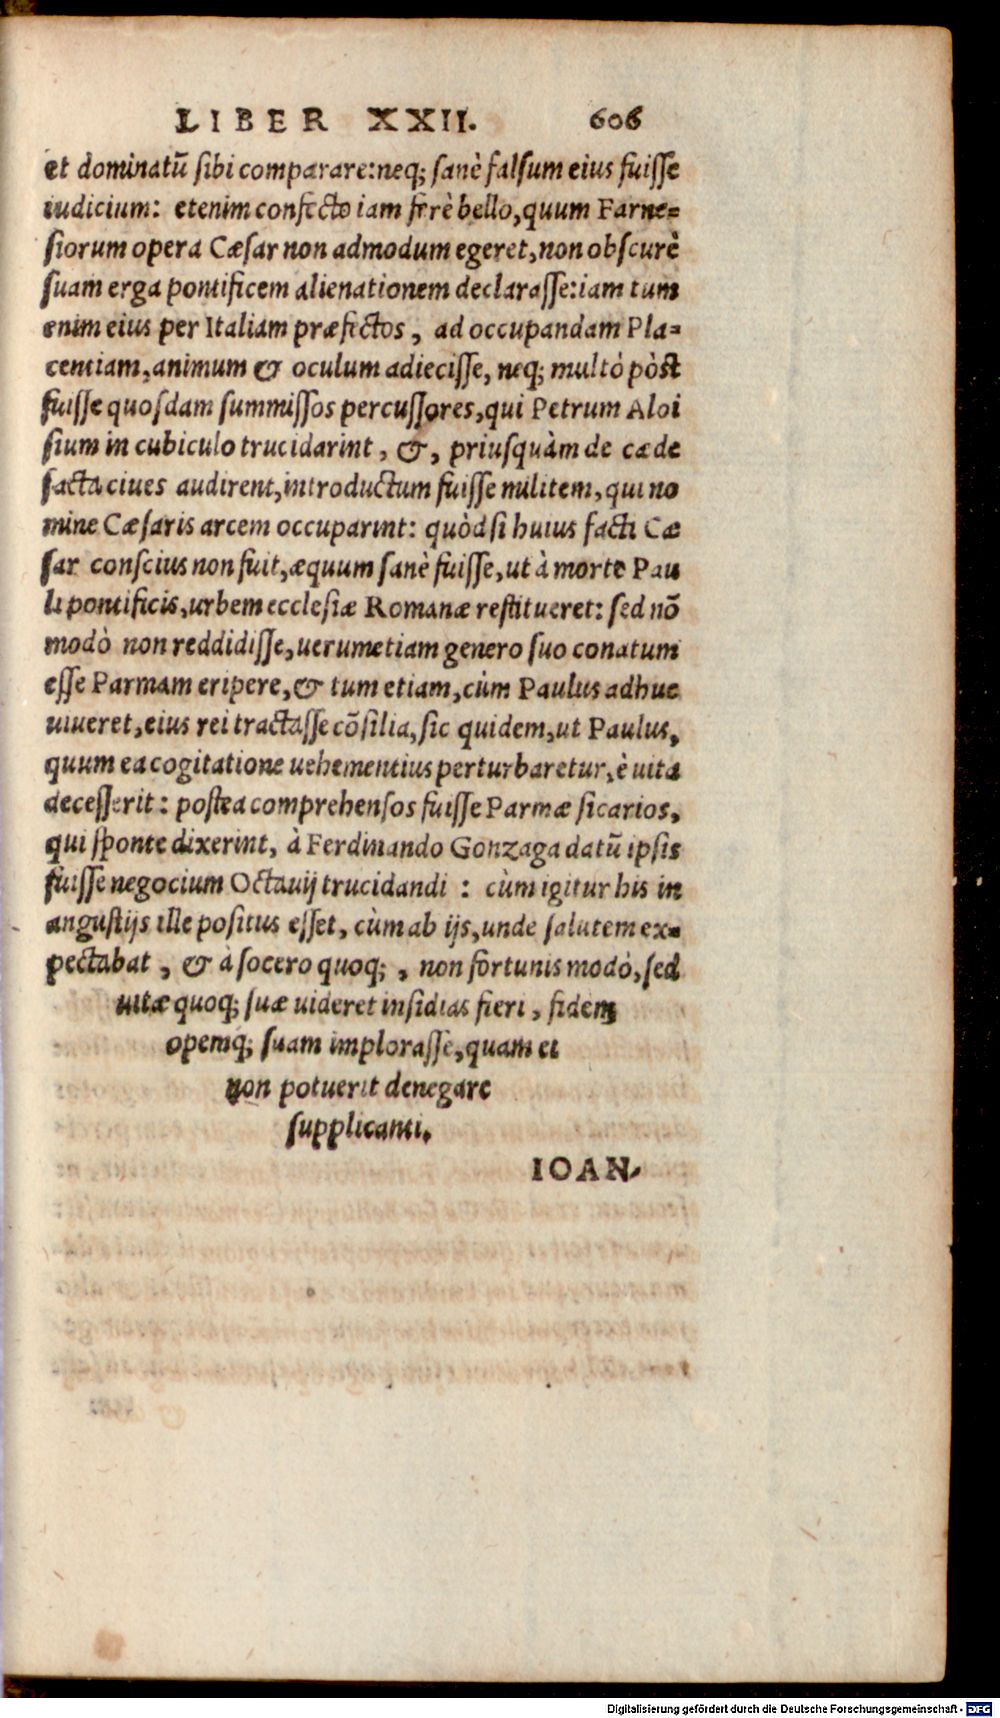 LIBER XXII. 606
et dominatū sibi comparare: neq; sanè falsum eius fuisse
iudicium: etenim confecto iam ferè bello, quum Farne=
siorum opera Cæsar non admodum egeret, non obscurè
suam erga pontificem alienationem declarasse: iam tum
enim eius per Italiam præfectos, ad occupandam Pla=
centiam, animum & oculum adiecisse, neq; multò pòst
fuisse quosdam summissos percussores, qui Petrum Aloi
sium in cubiculo trucidarint, &, priusquàm de cæde
facta ciues audirent, introductum fuisse militem, qui no
mine Cæsaris arcem occuparint: quòd si huius facti Cæ
sar conscius non fuit, æquum sanè fuisse, ut à morte Pau
li pontificis, urbem ecclesiæ Romanæ restitueret: sed nō
modò non reddidisse, uerumetiam genero suo conatum
esse Parmam eripere, & tum etiam, cùm Paulus adhuc
uiueret, eius rei tractasse cōsilia, sic quidem, ut Paulus,
quum ea cogitatione uehementius perturbaretur, è uita
decesserit: postea comprehensos fuisse Parmæ sicarios,
qui sponte dixerint, à Ferdinando Gonzaga datū ipsis
fuisse negocium Octauij trucidandi: cùm igitur his in
angustijs ille positus esset, cùm ab ijs, unde salutem ex=
pectabat, & à socero quoq;, non fortunis modò, sed
uitæ quoq; suæ uideret insidias fieri, fidem
opemq; suam implorasse, quam ei
non potuerit denegare
supplicanti.
IOAN.
Digitalisierung gefördert durch die Deutsche Forschungsgemeinschaft - DFG